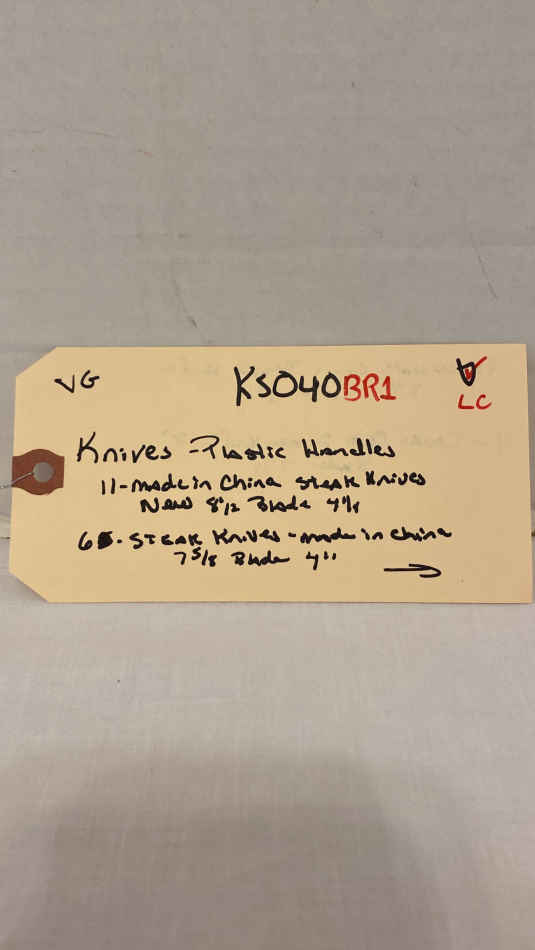 VG KSO40BR1
LC
Knives - Plastic Handles
11 - made in China Steak Knives
New 8 1/2 Blade 4"
6 - STEAK Knives - made in China
7 5/8 Blade 4"